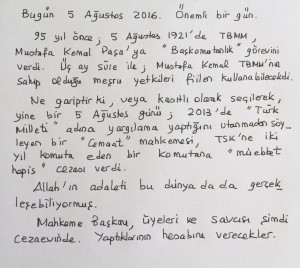 Bugün 5 Ağustos 2016. Önemli bir gün.
95 yıl önce; 5 Ağustos 1921'de TBMM,
Mustafa Kemal Paşa'ya "Başkomutanlık" görevini
verdi. Üç ay süre ile; Mustafa Kemal TBMM'na
sahip olduğu meşru yetkileri fiilen kullanabilecekdi.
Ne gariptir ki, veya kasıtlı olarak seçilerek,
yine bir 5 Ağustos günü; 2013'de "Türk
Milleti" adına yargılama yaptığını utanmadan söy-
leyen bir "Cemaat" mahkemesi, TSK'ne iki
yıl komuta eden bir komutana "müebbet
hapis" cezası verdi.
Allah'ın adaleti bu dünyada da gerçek
leşebiliyormuş.
Mahkeme Başkanı, üyeleri ve savcısı şimdi
cezaevinde. Yaptıklarının hesabını verecekler.